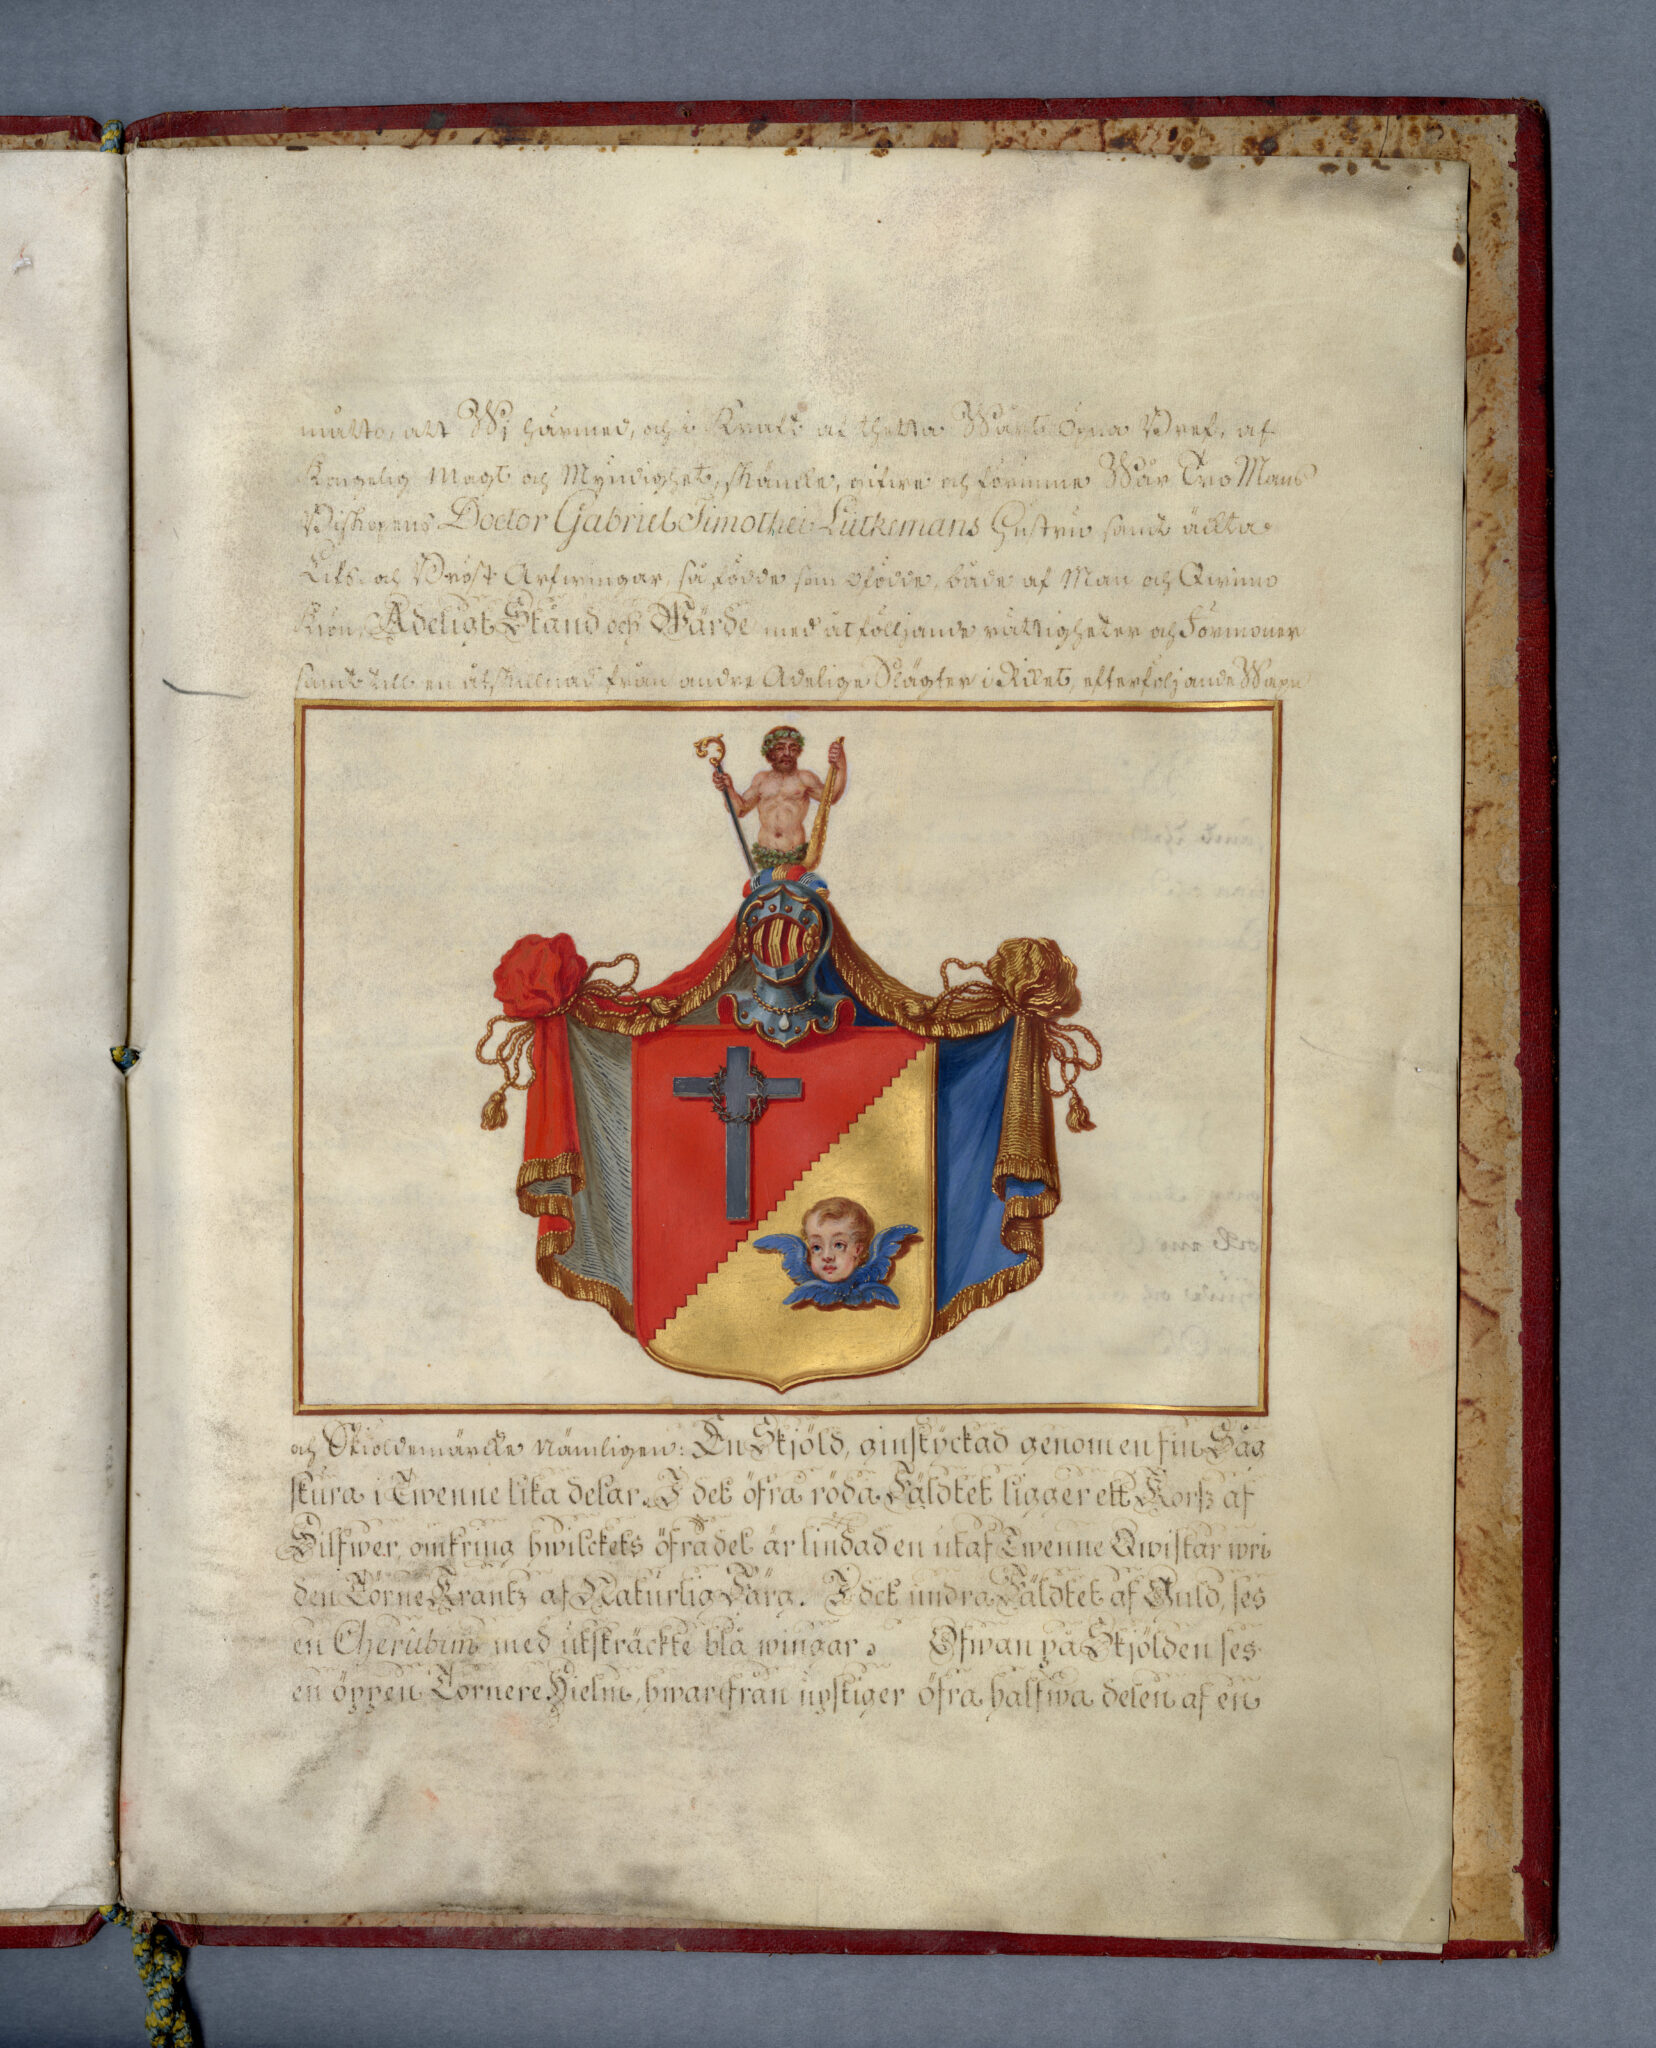 måtto, att Wj härmed, och i Kraft af thetta Wårt Öpna Bref, af
Kongelig Magt och Myndighet, skäncke, gifwe och förunne Wår Tro Mans
Biskopens Doctor Gabriel Timothei Lütkemans Hustru samt ächta
Lifs- och Bröst Arfwingar, så födde som ofödde, både af Man och Qwinno
Kiön, Adeligt Stånd och Wärde med åtföljande rättigheter och Förmoner
samt till en åtskillnad från andre Adelige Slägter i Riket, efterföljande Wapn
och Skioldemärcke Nämligen: En Skjöld, ginstyckad genom en fin Såg
skura i Twenne lika delar. I det öfra röda Fäldtet ligger ett Korß af
Silfwer, omkring hwilckets öfra del är lindad en utaf Twenne Qwistar wri
den Törne Krantz af Naturlig Färg. I det undra Fäldtet af Guld, ses
en Cherubim med utsträckte blå wingar. Ofwan på Skjölden ses
en öppen Tornere Hielm, hwarifrån upstiger öfra halfwa delen af en